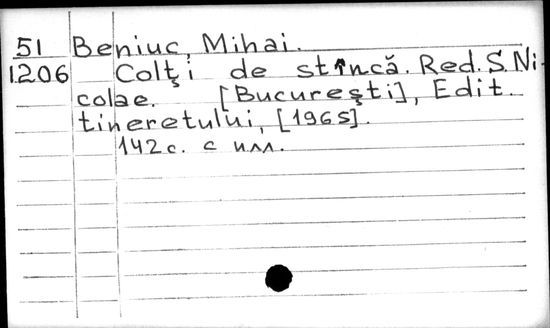 51 Beniuc, Mihai.
1206 Colţi de stîncă. Red. S. Ni-
colae. [Bucureşti], Edit.
tineretului, [1965].
142 с. с илл.